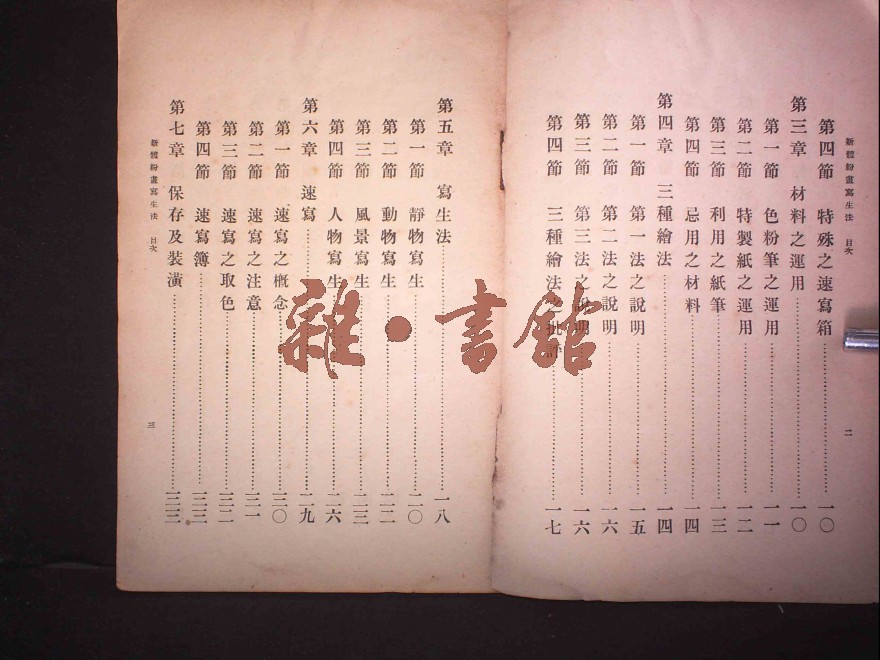 新體粉畫寫生法 目次
第四節 特殊之速寫箱……一〇
第三章 材料之運用……一〇
第一節 色粉筆之運用……一一
第二節 特製紙之運用……一二
第三節 利用之紙筆……一三
第四節 忌用之材料……一四
第四章 三種繪法……一四
第一節 第一法之說明……一五
第二節 第二法之說明……一六
第三節 第三法之說明……一六
第四節 三種繪法之批評……一七
二
第五章 寫生法……一八
第一節 靜物寫生……二〇
第二節 動物寫生……二二
第三節 風景寫生……二三
第四節 人物寫生……二六
第六章 速寫……二九
第一節 速寫之概念……三〇
第二節 速寫之注意……三一
第三節 速寫之取色……三二
第四節 速寫簿……三三
第七章 保存及裝潢……三三
新體粉畫寫生法 目次
三
雜·書館